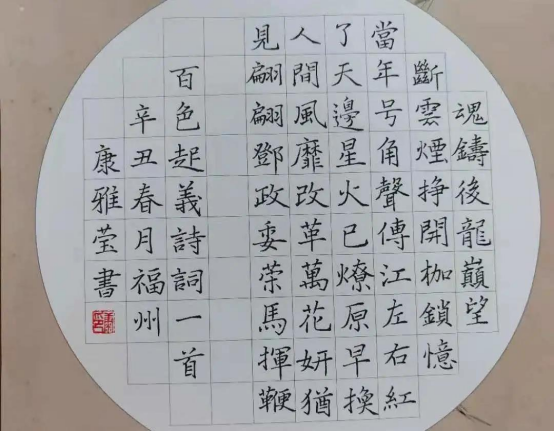 魂鑄後龍巔望
斷雲煙掙開枷鎖憶
當年号角聲傳江左右紅
了天邊星火已燎原早換
人間風靡改革萬花妍猶
見翩翩鄧政委荣馬揮鞭
百色起義詩詞一首
辛丑春月福州
康雅莹書